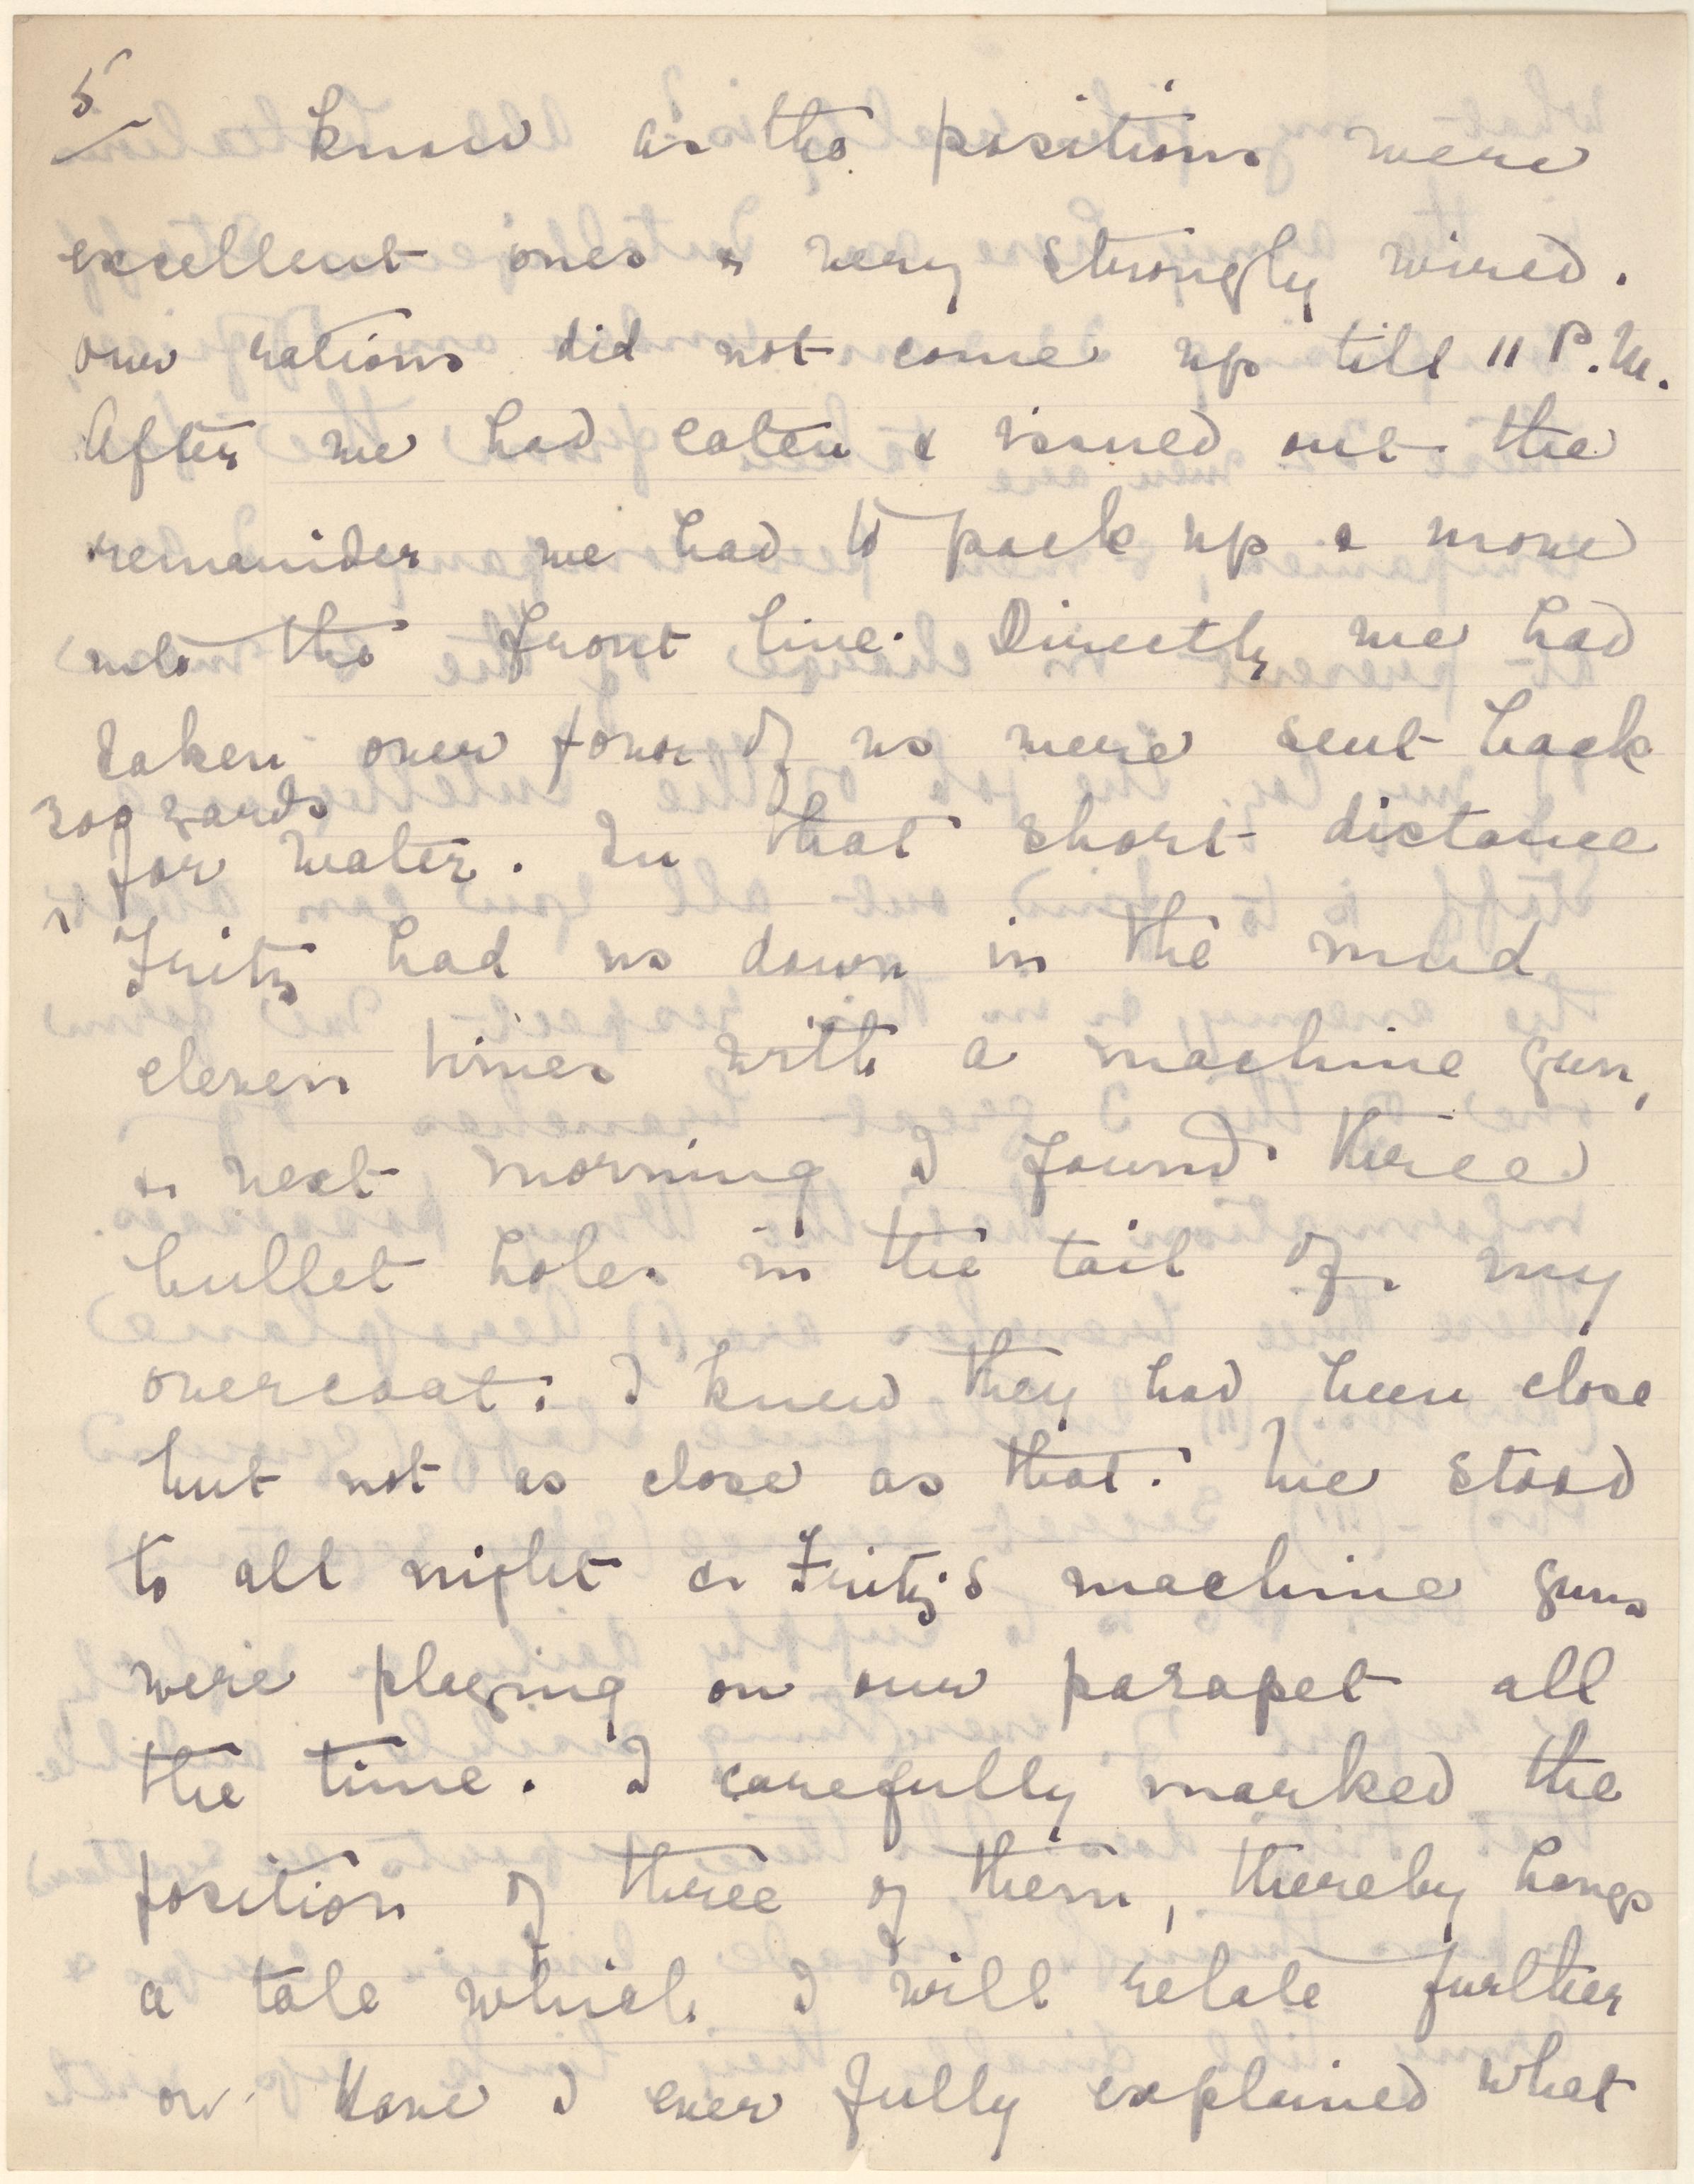 5
know as the positions were
excellent ones & very strongly wired.
our rations did not come up till 11 P.M.
After we had eaten & issued out the
remainder we had to pack up & move
into the front line. Directly we had
taken over four of us were sent back
300 yards
for water. In that short distance
Fritz had us down in the mud
eleven times with a machine gun,
& next morning I found three
bullet holes in the tail of my
overcoat. I knew they had been close
but not as close as that. We stood
to all night as Fritz's machine guns
were playing on our parapet all
the time. I carefully marked the
position of three of them, thereby hangs
a tale which I will relate further
on. Have I ever fully explained what